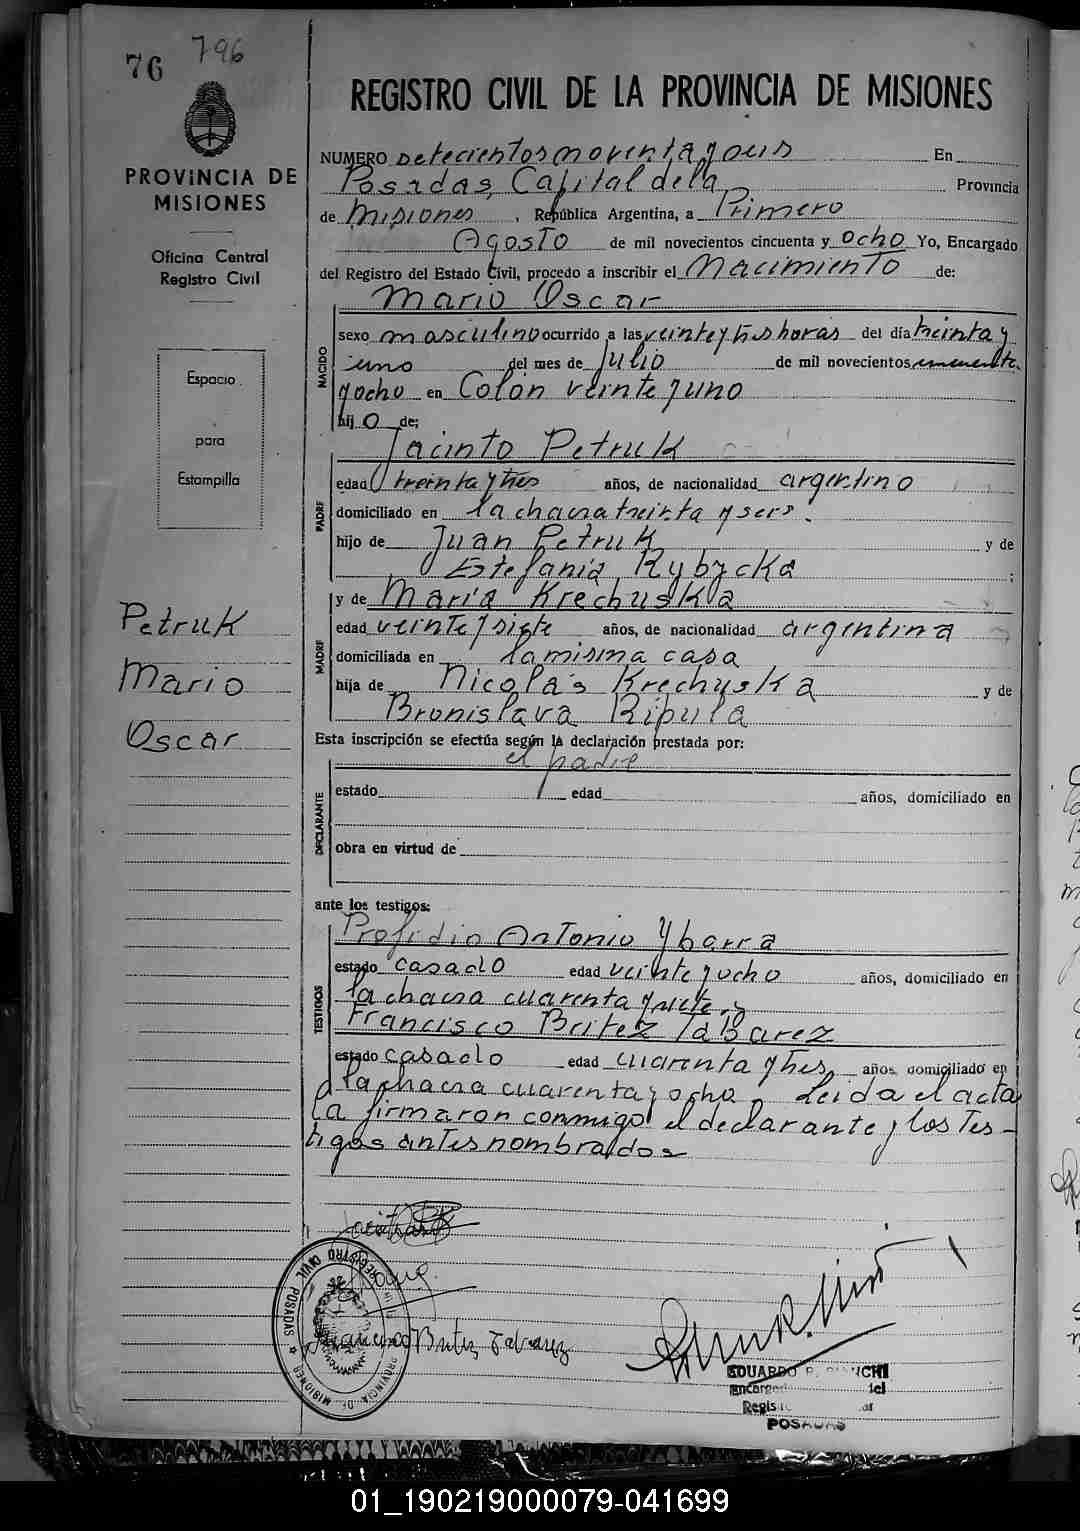 76 796
REGISTRO CIVIL DE LA PROVINCIA DE MISIONES
PROVINCIA DE
MISIONES
Oficina Central
Registro Civil
Espacio
para
Estampilla
Petruk
Mario
Oscar
NUMERO setecientos noventa y seis En
Posadas, Capital de la Provincia
de Misiones, República Argentina, a Primero
Agosto de mil novecientos cincuenta y ocho Yo, Encargado
del Registro del Estado Civil, procedo a inscribir el Nacimiento de:
Mario Oscar
NACIDO
sexo masculino ocurrido a las veinte y tres horas del día treinta y
uno del mes de Julio de mil novecientos cincuenta
y ocho en Colón veinte y uno
hijo de:
Jacinto Petruk
PADRE
edad treinta y tres años, de nacionalidad argentino
domiciliado en la chacra treinta y seis.
hijo de Juan Petruk y de
Estefania Rybzcka ;
y de María Krechuska
MADRE
edad veinte y siete años, de nacionalidad argentina
domiciliada en la misma casa
hija de Nicolás Krechuska y de
Bronislava Ripula
Esta inscripción se efectúa según la declaración prestada por:
el padre
DECLARANTE
estado edad años, domiciliado en
obra en virtud de
ante los testigos:
Profidio Antonio Ybarra
TESTIGOS
estado casado edad veinte y ocho años, domiciliado en
la chacra cuarenta y siete, y
Francisco Britez Tabarez
estado casado edad cuarenta y tres años, domiciliado en
la chacra cuarenta y ocho. Leida el acta
la firmaron conmigo el declarante y los tes-
tigos antes nombrados
REGISTRO CIVIL POSADAS
PROVINCIA DE MISIONES
Francisco Britez Tabarez
EDUARDO R.
POSADAS
01_190219000079-041699